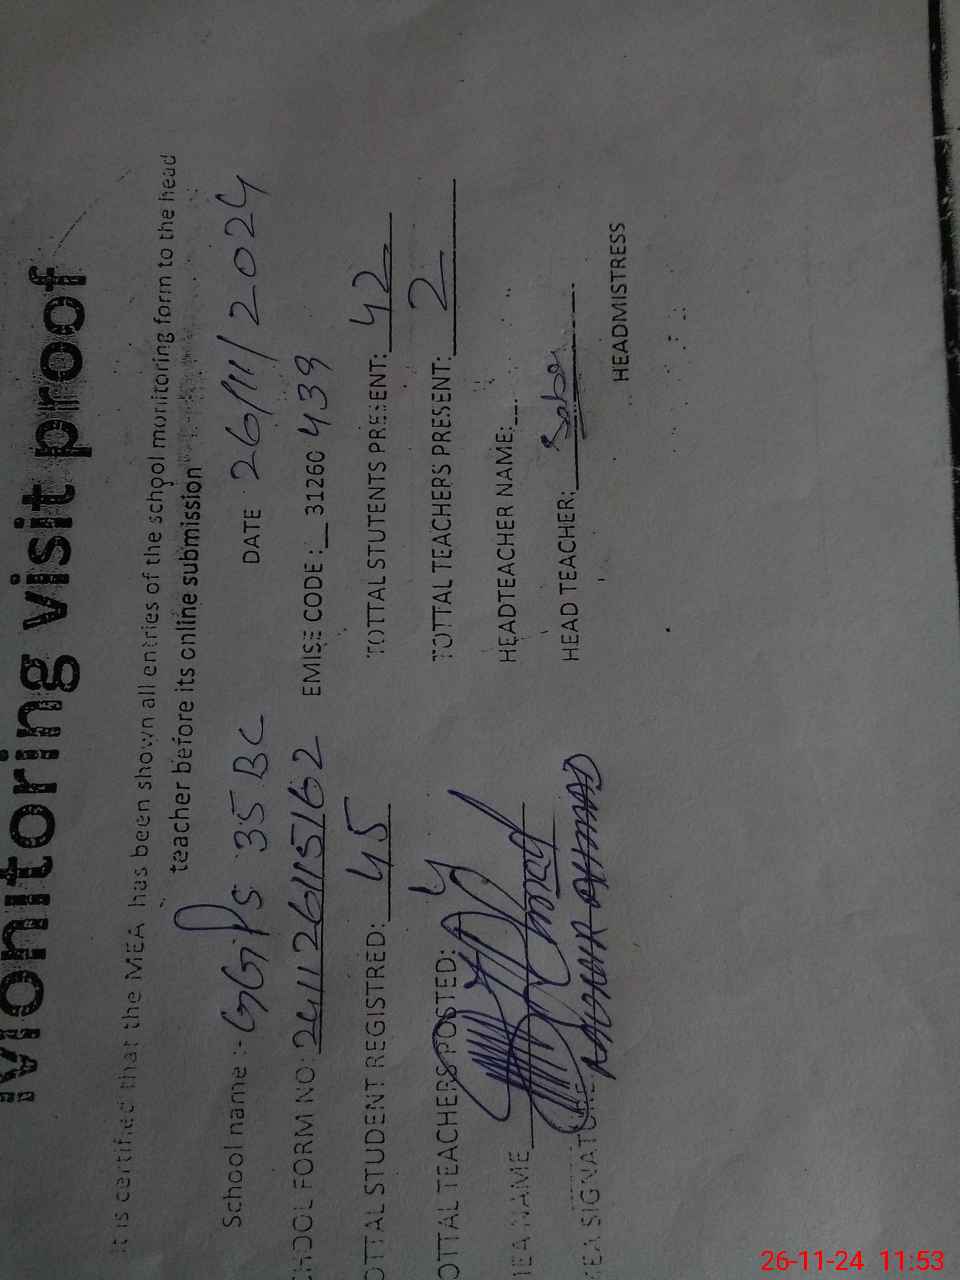 Monitoring visit proof
It is certified that the MEA has been shown all entries of the school monitoring form to the head
teacher before its online submission
School name :- GGPS 35 BC DATE 26/11/2024
CHOOL FORM NO: 241126115162 EMISE CODE: 31260 439
OTTAL STUDENT REGISTRED: 45 TOTTAL STUTENTS PRESENT: 42
OTTAL TEACHERS POSTED: 4 TOTTAL TEACHERS PRESENT: 2
MEA NAME HEADTEACHER NAME:
MEA SIGNATURE HEAD TEACHER:
HEADMISTRESS
26-11-24 11:53